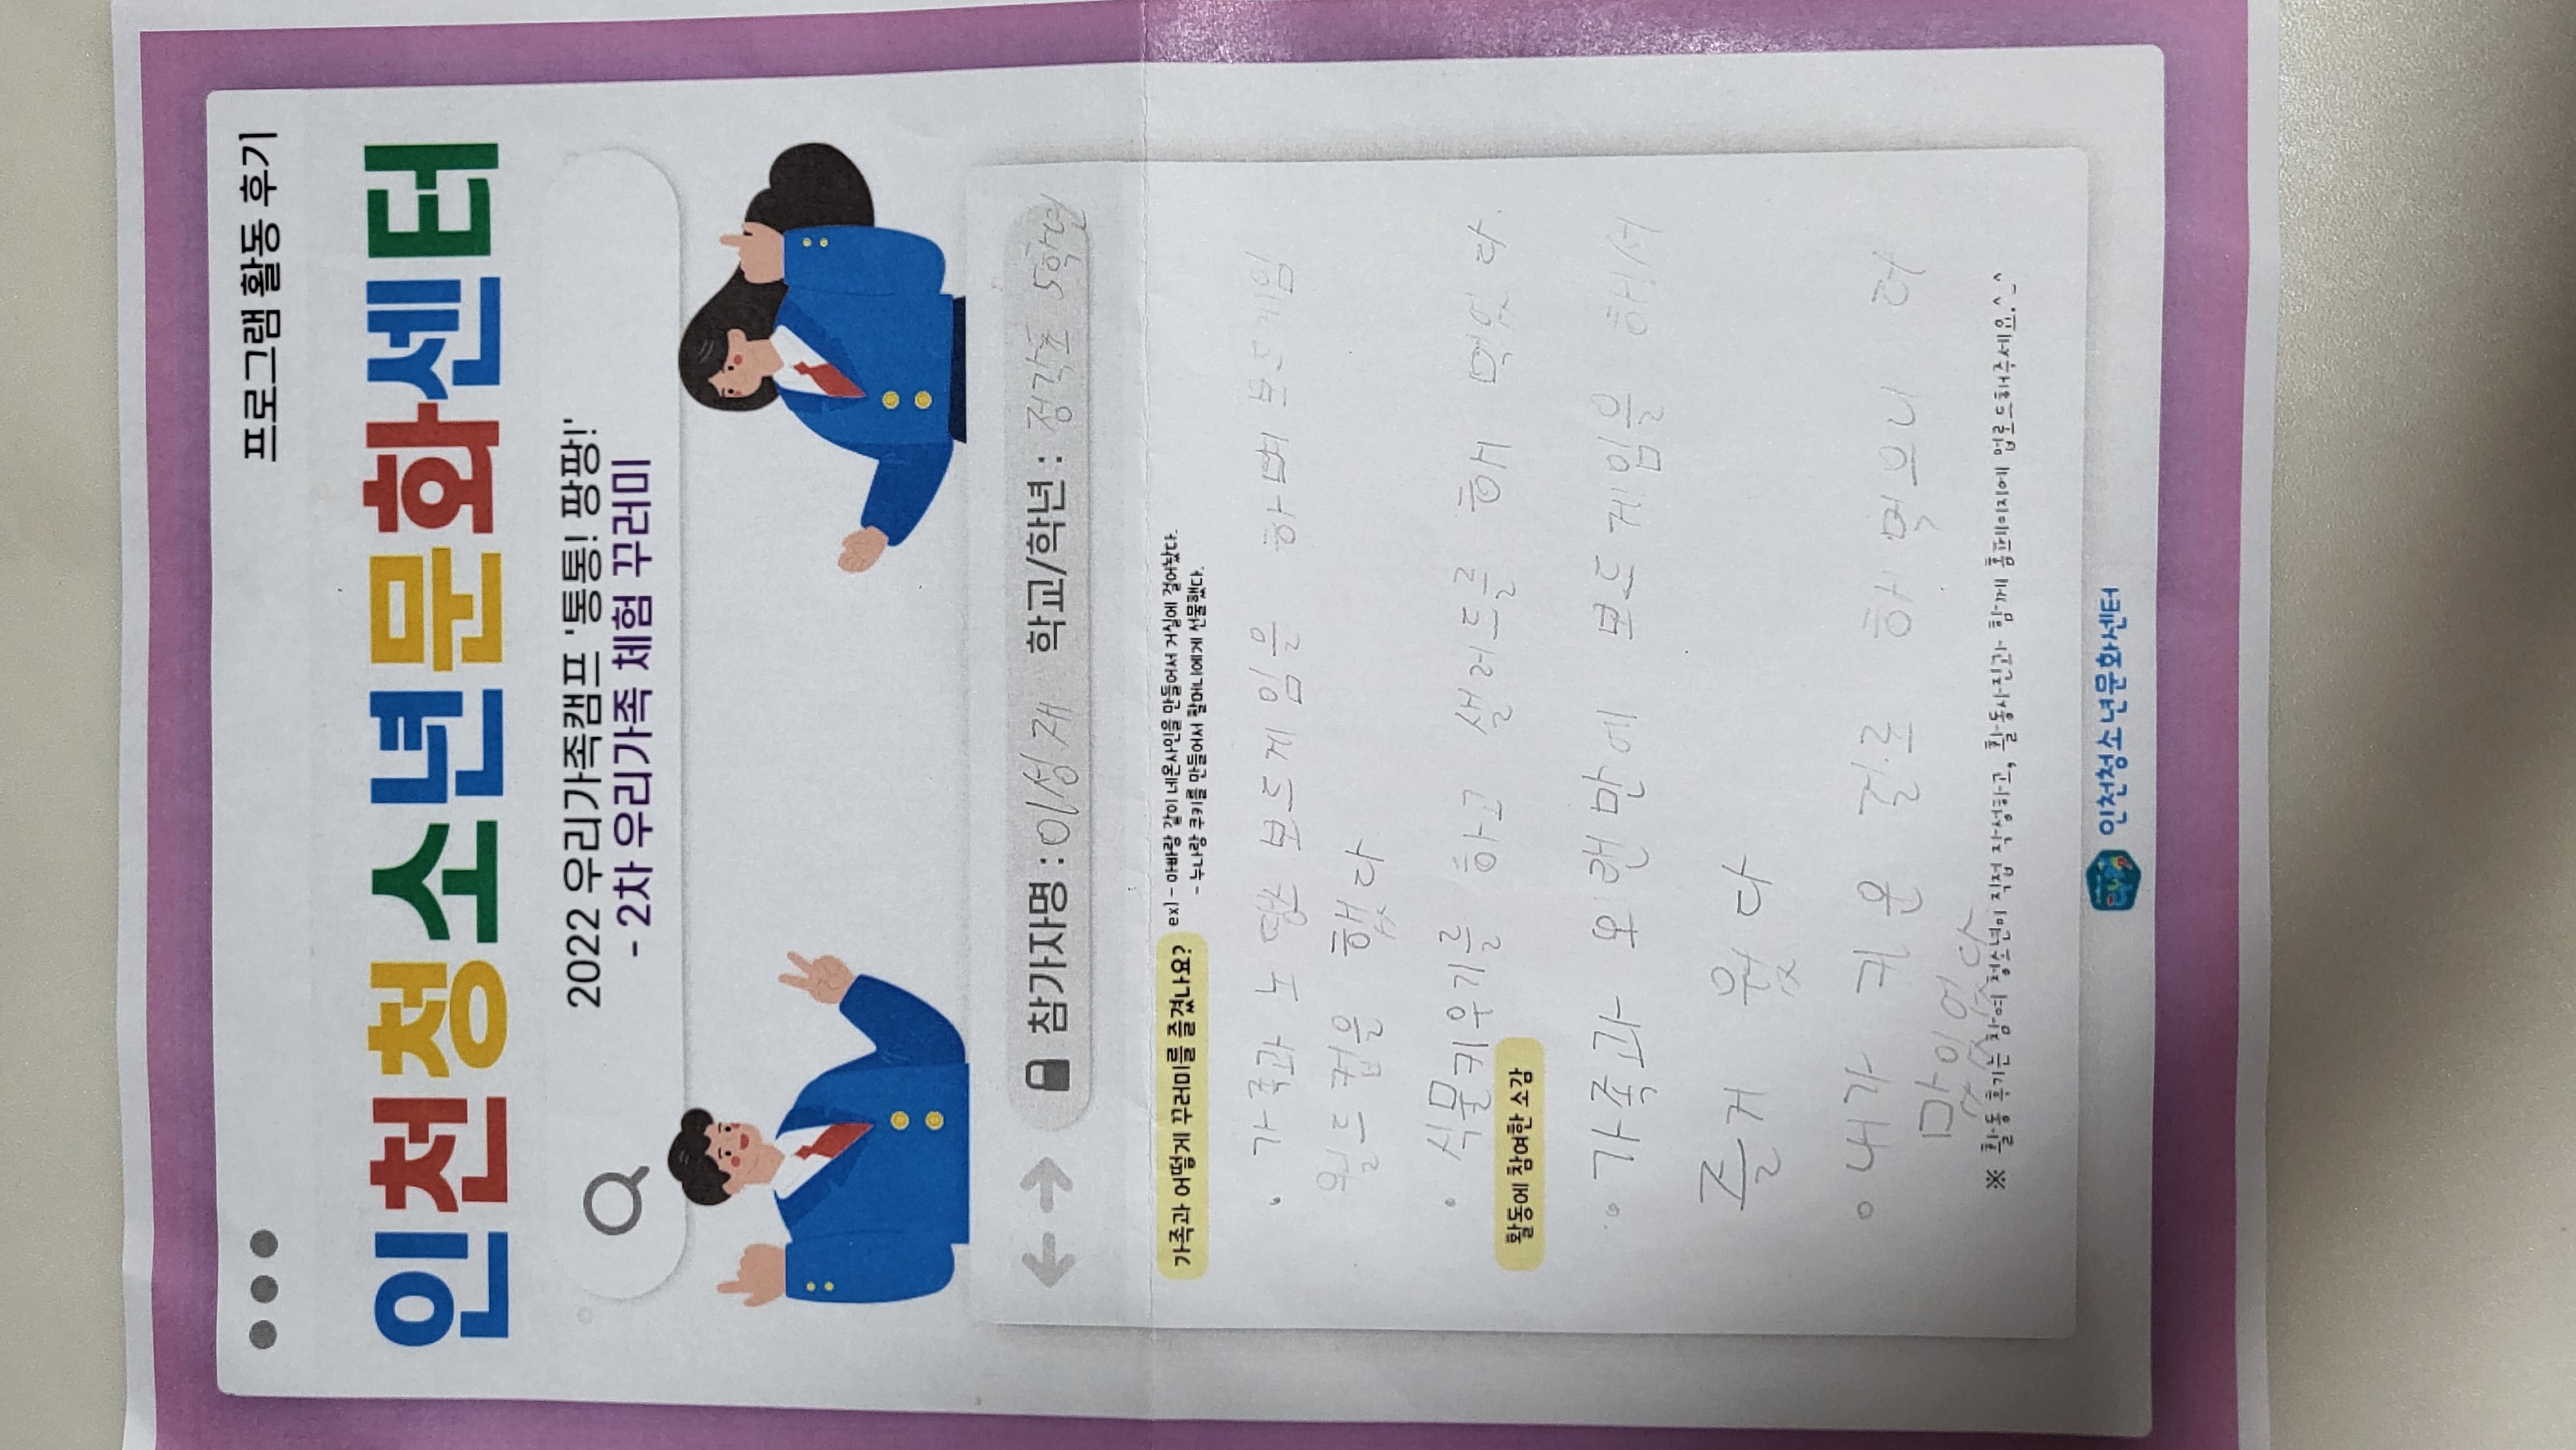 프로그램 활동 후기
인천청소년문화센터
2022 우리가족캠프 '통통! 팡팡!'
- 2차 우리가족 체험 꾸러미
참가자명 : 이성재 학교/학년 : 정각초 5학년
가족과 어떻게 꾸러미를 즐겼나요? ex) - 아빠랑 같이 네온사인을 만들어서 거실에 걸어놨다.
- 누나랑 쿠키를 만들어서 할머니에게 선물했다.
· 가족과 노 땡쓰 보드게임을 하며 보드게임
월드컵을 했다
· 식물키우기를 하고 샐러드를 해 먹었다.
활동에 참여한 소감
· 가족과 오랜만에 보드게임을 해서
즐거웠다
· 내가 키운 걸로 해먹으니 더
맛있었다
※ 활동 후기는 참여 청소년이 직접 작성하고, 활동사진과 함께 홈페이지에 업로드해주세요.^^
인천청소년문화센터